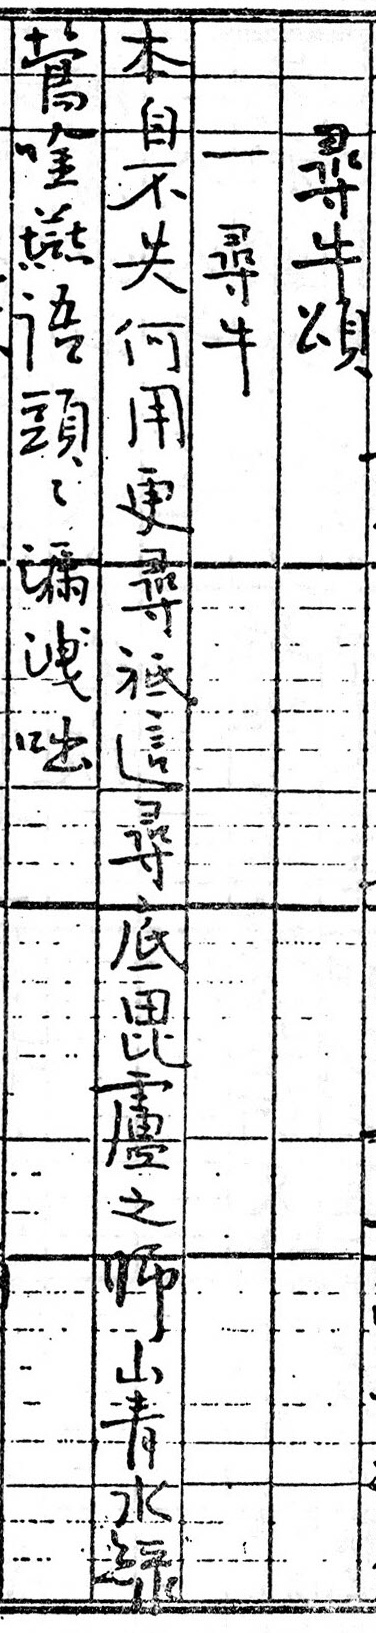 尋牛頌
一 尋牛
本自不失何用更尋祗這尋底毘盧之師山青水綠
鶯吟燕語頭〻漏洩咄